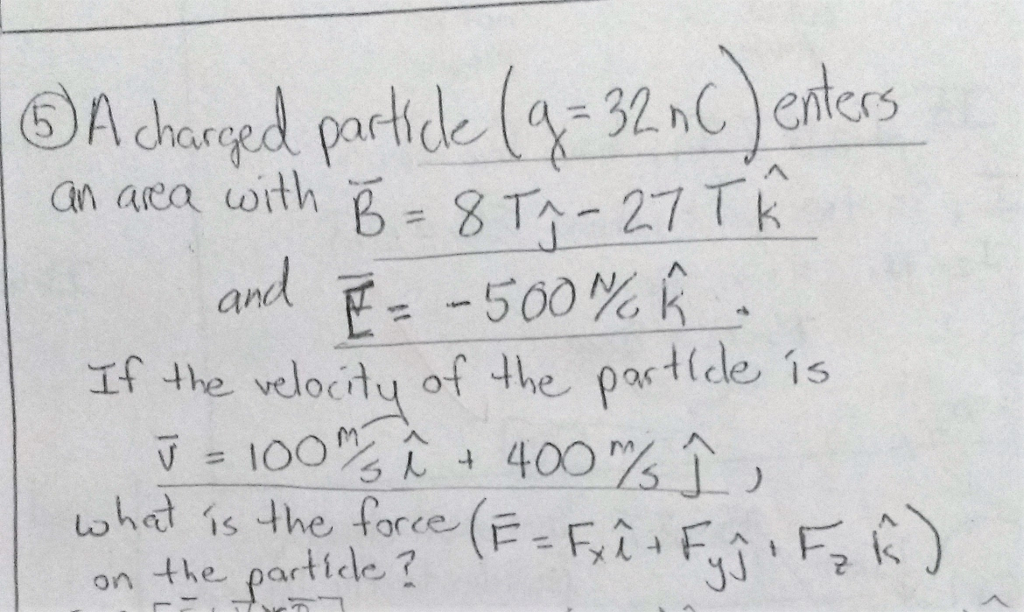 ⑤ A charged particle (q = 32 nC) enters
an area with B̄ = 8 T ĵ - 27 T k̂
and Ē = -500 N/C k̂ .
If the velocity of the particle is
v̄ = 100 m/s î + 400 m/s ĵ ,
what is the force (F̄ = Fₓ î + F_y ĵ + F_z k̂)
on the particle?